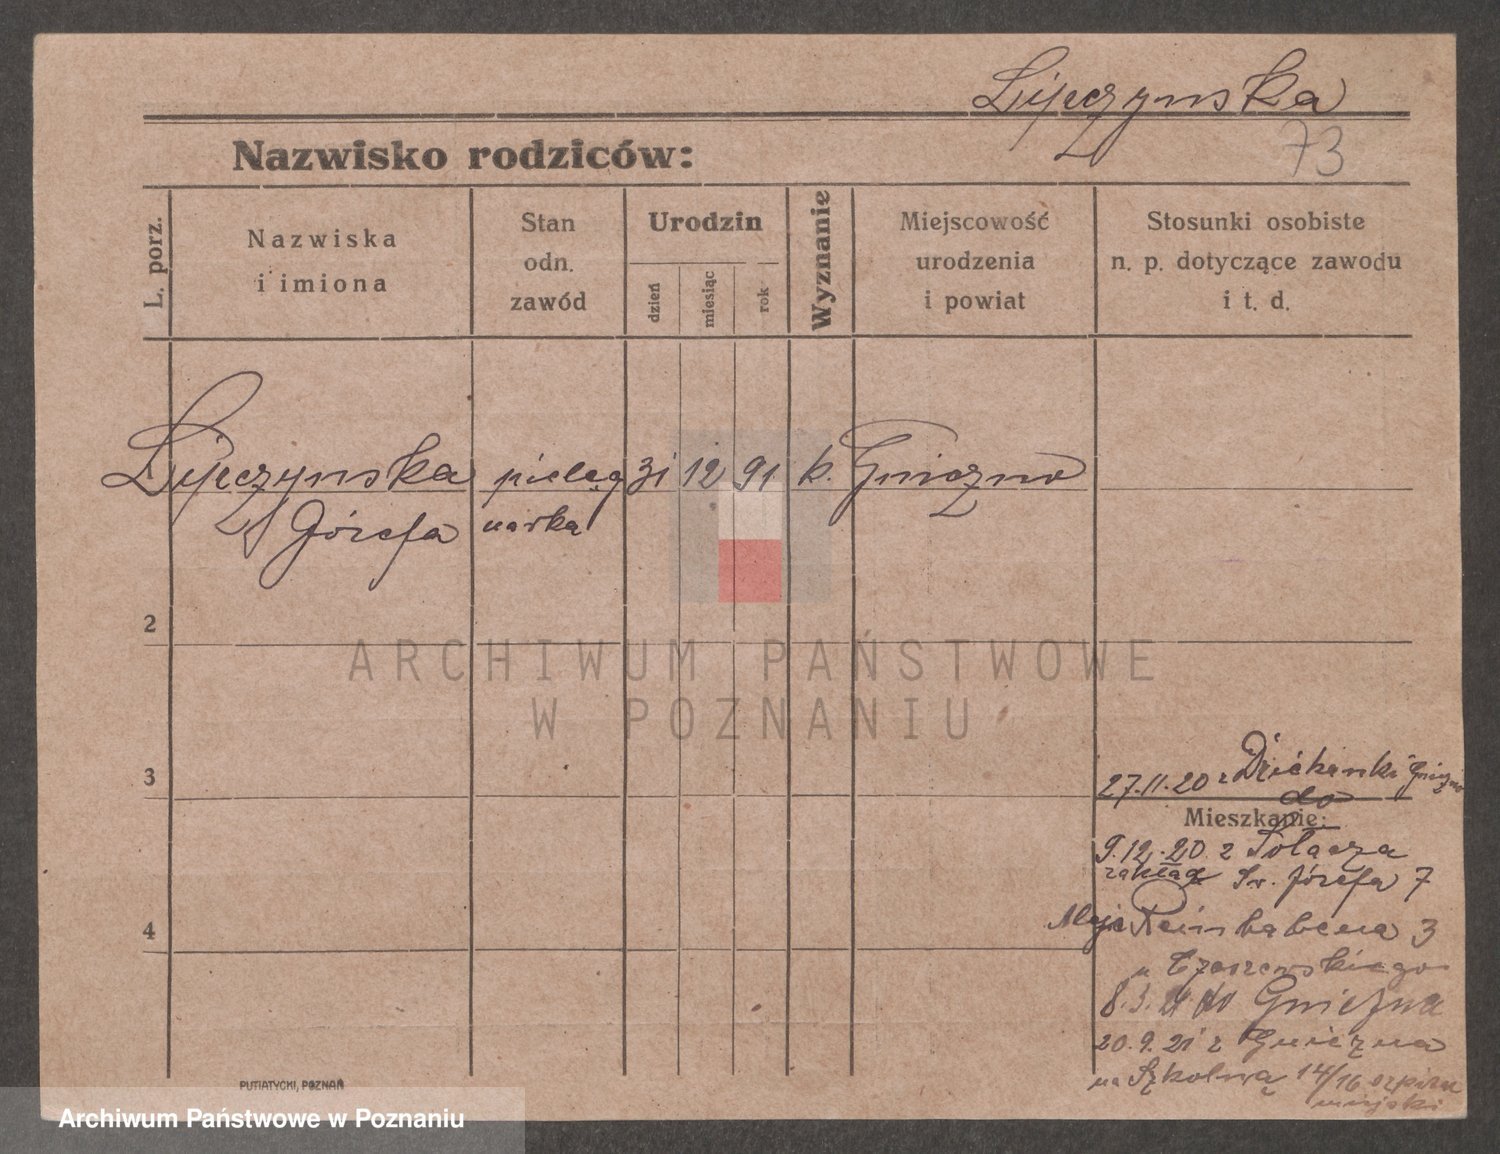 Lijeczynska
73
Nazwisko rodziców:
L. porz.
Nazwiska
i imiona
Stan
odn.
zawód
Urodzin
dzień
miesiąc
rok
Wyznanie
Miejscowość
urodzenia
i powiat
Stosunki osobiste
n. p. dotyczące zawodu
i t. d.
Lijeczynska pieleg 31 12 91 k. Gniezno
Józefa narka
2
ARCHIWUM PAŃSTWOWE
W POZNANIU
3
27.11.20 z Dziekanki Gniezno
do
Mieszkanie:
9.12.20 z Sołacza
zakład Św. Józefa 7
4
Aleje 3
u
8.3.21 do Gniezna
20.9.21 z Gniezna
na Szkolną 14/16 szpital
miejski
PUTIATYCKI, POZNAŃ
Archiwum Państwowe w Poznaniu